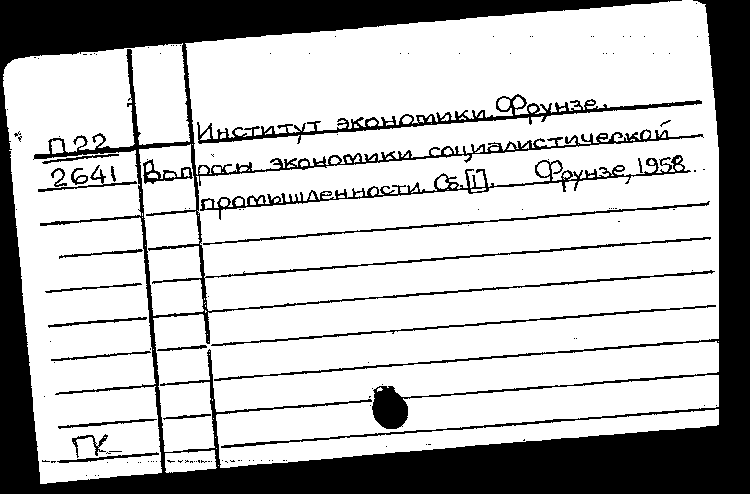 П22
2641
Институт экономики. Фрунзе.
Вопросы экономики социалистической
промышленности. Сб. [1]. Фрунзе, 1958
ГК